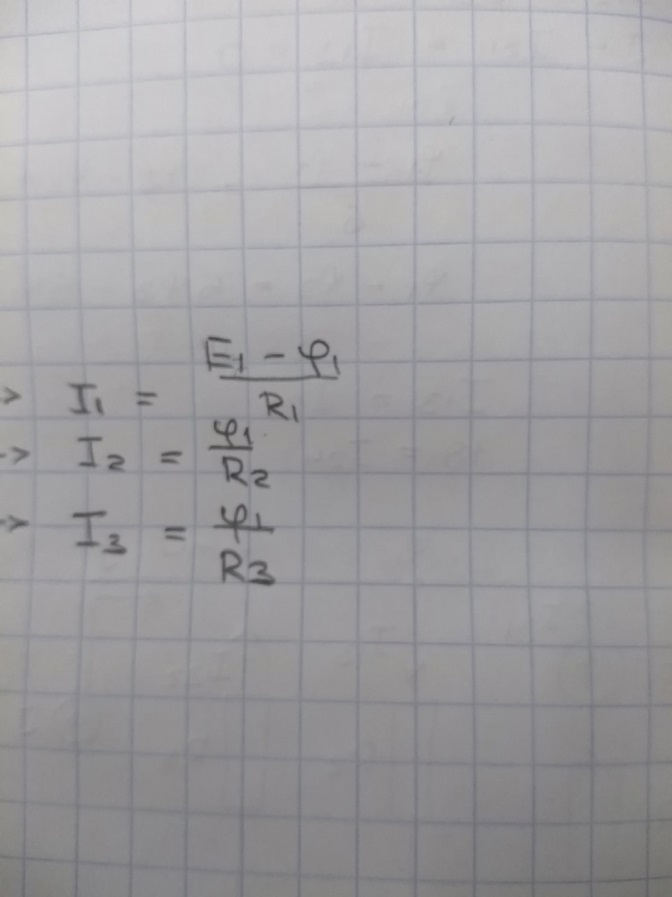 -> I₁ = (E₁ - φ₁) / R₁
-> I₂ = φ₁ / R₂
-> I₃ = φ₁ / R₃